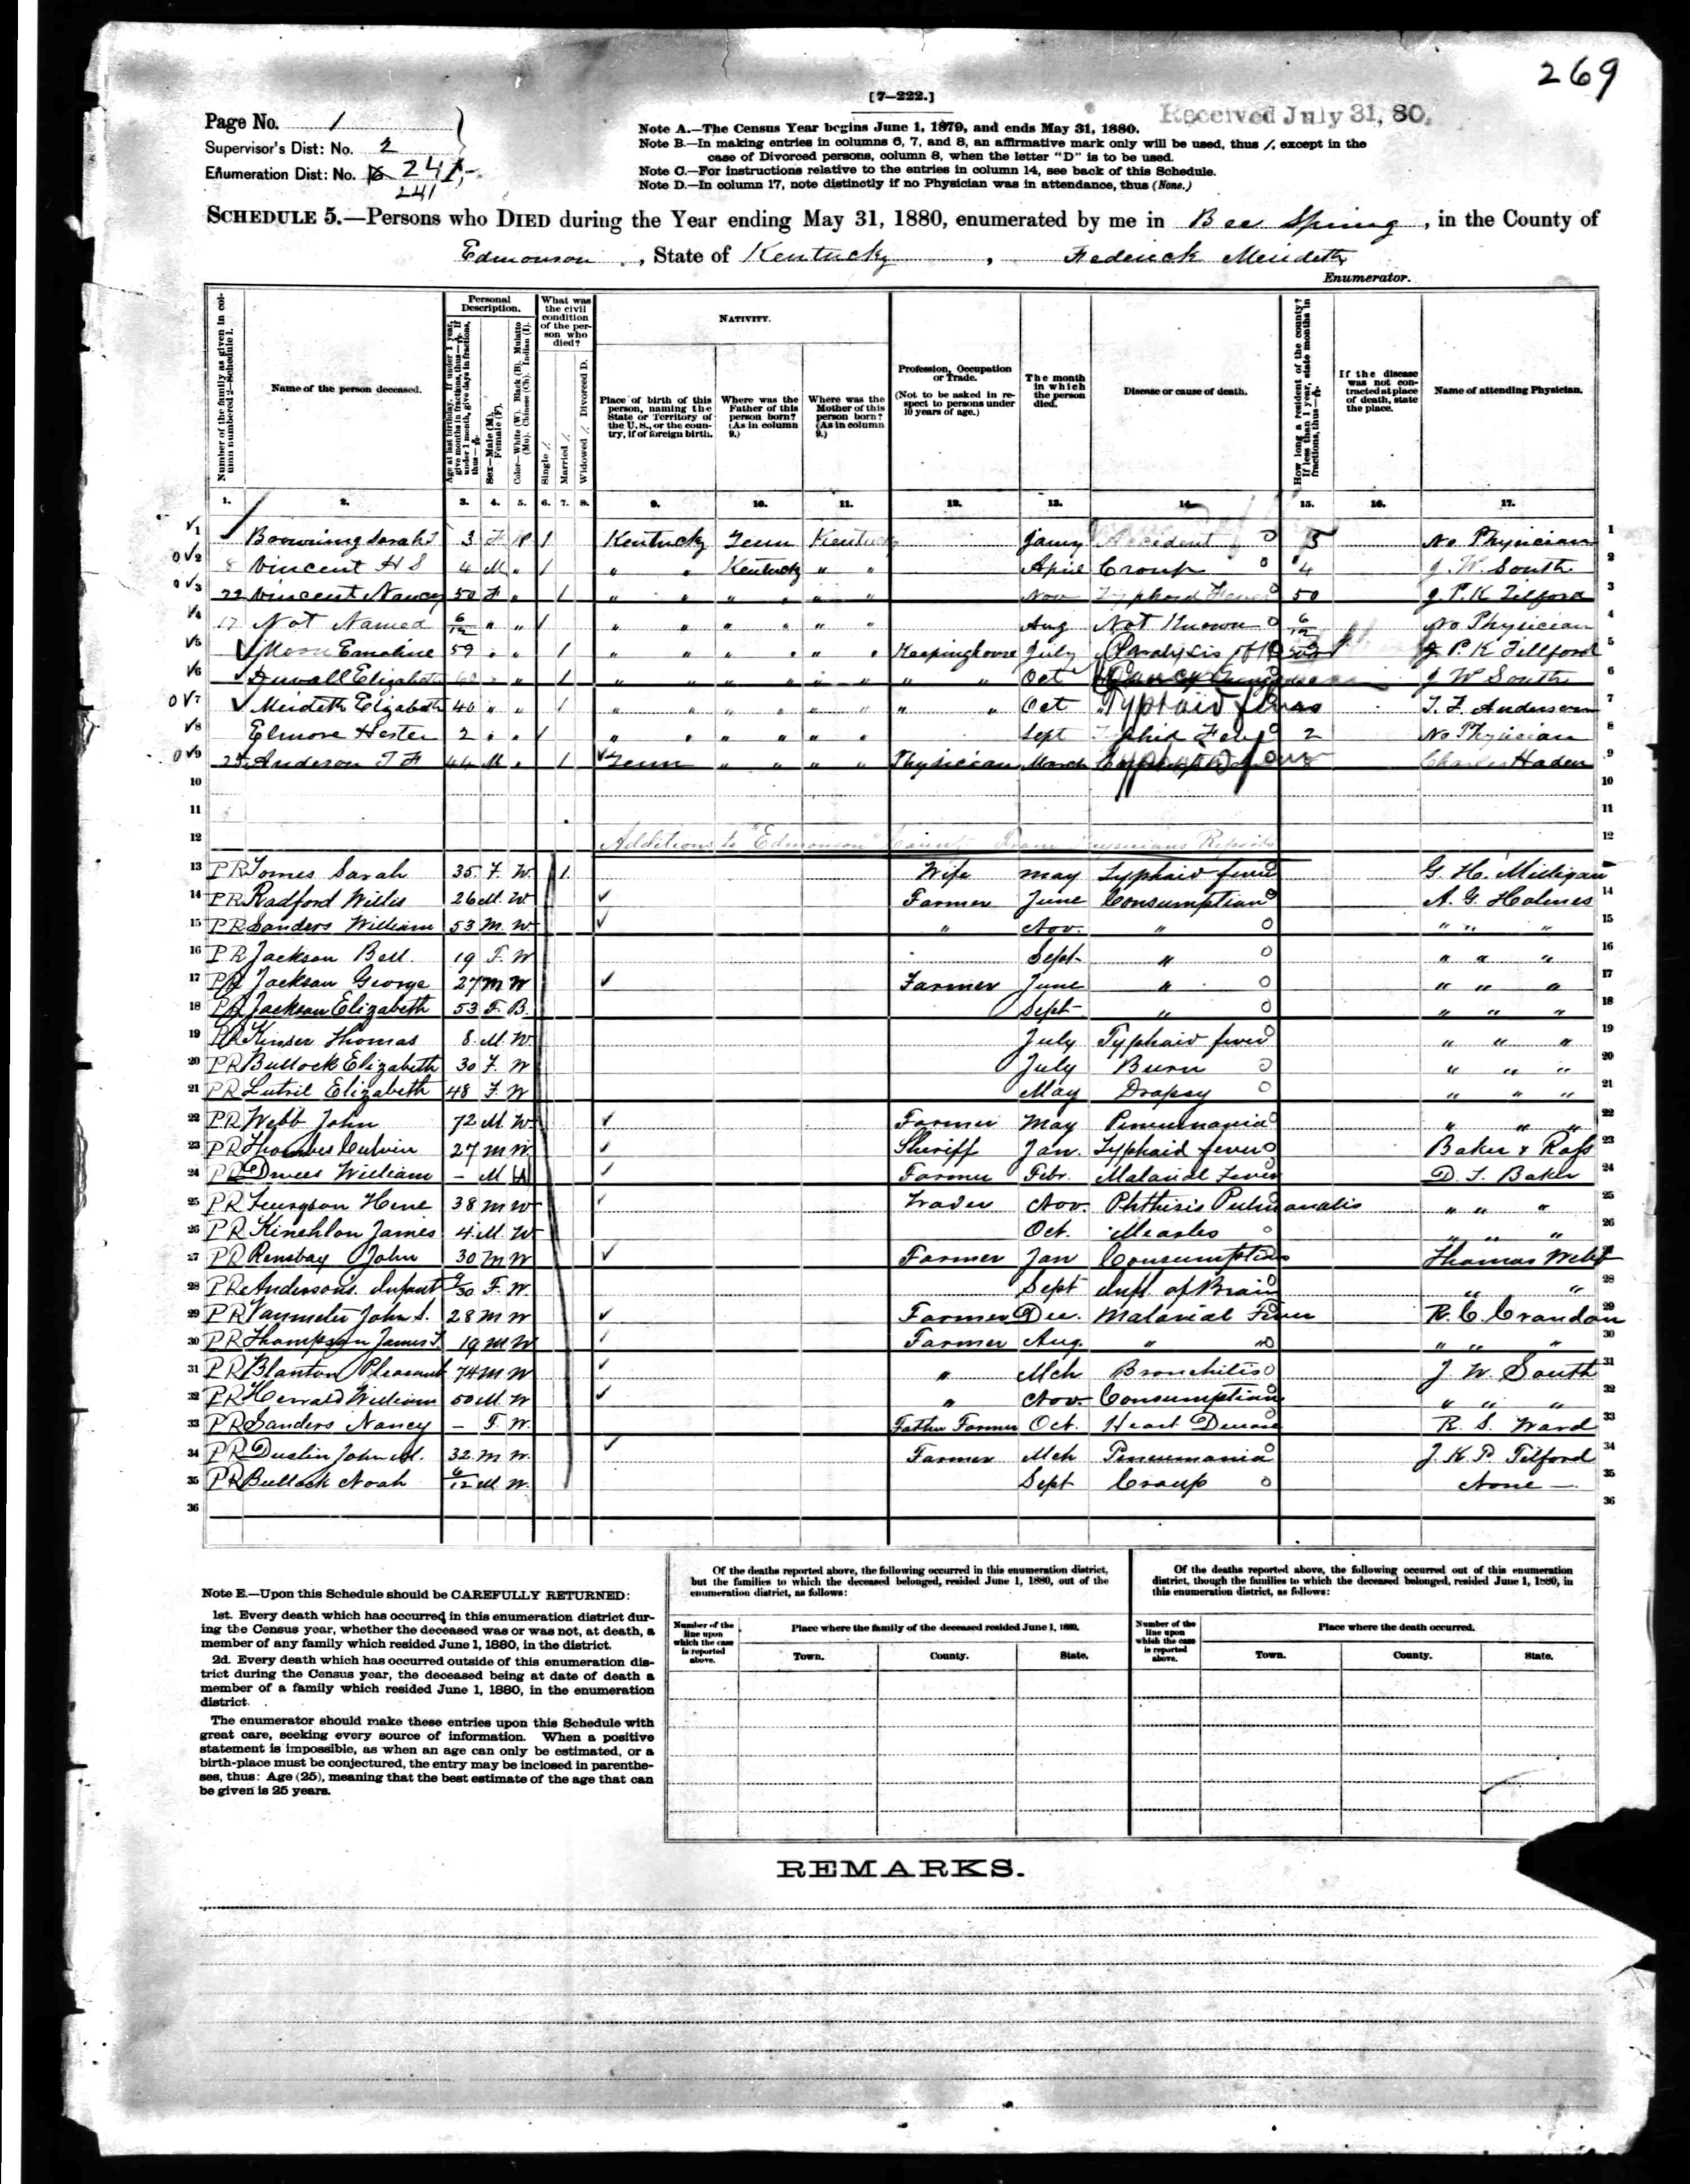 269
[7–222.]
Received July 31, 80.
Page No. 1
Supervisor's Dist: No. 2
Enumeration Dist: No. 241
241
Note A.—The Census Year begins June 1, 1879, and ends May 31, 1880.
Note B.—In making entries in columns 6, 7, and 8, an affirmative mark only will be used, thus /, except in the
case of Divorced persons, column 8, when the letter "D" is to be used.
Note C.—For instructions relative to the entries in column 14, see back of this Schedule.
Note D.—In column 17, note distinctly if no Physician was in attendance, thus (None.)
SCHEDULE 5.—Persons who DIED during the Year ending May 31, 1880, enumerated by me in Bee Spring, in the County of
Edmonson, State of Kentucky, Federick Merideth
Enumerator.
Number of the family as given in column numbered 2—Schedule 1.
Name of the person deceased.
Personal Description.
Age at last birthday. If under 1 year, give months in fractions, thus— If under 1 month, give days in fractions, thus—
Sex—Male (M), Female (F).
Color—White (W). Black (B). Mulatto (Mu). Chinese (Ch). Indian (I).
What was the civil condition of the person who died?
Single /.
Married /.
Widowed /. Divorced D.
NATIVITY.
Place of birth of this person, naming the State or Territory of the U. S., or the country, if of foreign birth.
Where was the Father of this person born? (As in column 9.)
Where was the Mother of this person born? (As in column 9.)
Profession, Occupation or Trade.
(Not to be asked in respect to persons under 10 years of age.)
The month in which the person died.
Disease or cause of death.
How long a resident of the county? If less than 1 year, state months in fractions, thus—
If the disease was not contracted at place of death, state the place.
Name of attending Physician.
1. 2. 3. 4. 5. 6. 7. 8. 9. 10. 11. 12. 13. 14. 15. 16. 17.
1 Browning Sarah 3 F W / Kentucky Tenn Kentucky Jany Accident 5 No Physician 1
2 8 Vincent H S 4 M " / " " Kentucky " " April Croup 4 J W South 2
3 22 Vincent Nancy 50 F " / " " " " " " Nov Typhoid Fever 50 J P. K Tilford 3
4 17 Not Named 6/12 " " / " " " " " " Aug Not Known 6/12 No Physician 4
5 Moon Emaline 59 " " / " " " " " " Keepinghouse July Paralysis of J P. K Tillford 5
6 Duvall Elizabeth " " / " " " " " " " " Oct Cancer J W South 6
7 Merideth Elizabeth 40 " " / " " " " " " " " Oct Typhoid fever T. F. Anderson 7
8 Elmore Hester 2 " " / " " " " " " Sept Typhid Fever 2 No Physician 8
9 25 Anderson T F 44 M " / Tenn " " " " Physician March Typhoid fever Charles Haden 9
10 10
11 11
12 Additions to "Edmonson" County From Physicians Reports 12
13 PR Tomes Sarah 35 F. W. 1 Wife May Typhoid fever G. H. Milligan
14 PR Radford Willis 26 M. W Farmer June Consumption A. G. Holmes 14
15 PR Sanders William 53 M. W. " Nov. " " " " 15
16 PR Jackson Bell. 19 F. W Sept " " " " 16
17 PR Jackson George 27 M W Farmer June " " " " 17
18 PR Jackson Elizabeth 53 F. B. Sept " " " " 18
19 PR Kinser Thomas 8. M. W July Typhoid fever " " " 19
20 PR Bullock Elizabeth 30 F. W July Burn " " " 20
21 PR Lutril Elizabeth 48 F. W May Dropsy " " " 21
22 PR Webb John 72 M. W. Farmer May Pneumonia " " " 22
23 PR Thomas 27 M W. Sheriff Jan. Typhoid fever Baker & Ross 23
24 PR William – M W Farmer Febr. Malarial Fever D. T. Baker 24
25 PR 38 M W Trader Nov. Phthisis Pulmonalis " " " 25
26 PR Kinchlon James 4 M. W Oct. Measles " " " 26
27 PR John 30 M W Farmer Jan Consumption Thomas Webb
28 PR Andersons Infant F. W. Sept Infl. of Brain " " 28
29 PR Vanmeter John S. 28 M W Farmer Dec. Malarial Fever R. C. Crandon 29
30 PR Thompson James T. 19 M W Farmer Aug. " " " " " 30
31 PR Blanton Pleasant 74 M W " Mch Bronchitis J. W. South 31
32 PR William 50 M. W " Nov. Consumption " " " 32
33 PR Sanders Nancy – F. W. Father Farmer Oct. Heart Disease R. S. Ward 33
34 PR Dustin John M. 32 M W. Farmer Mch Pneumonia J. K. P Tilford 34
35 PR Bullock Noah 6/12 M. W. Sept Croup None — 35
36 36
Note E.—Upon this Schedule should be CAREFULLY RETURNED:
1st. Every death which has occurred in this enumeration district dur-
ing the Census year, whether the deceased was or was not, at death, a
member of any family which resided June 1, 1880, in the district.
2d. Every death which has occurred outside of this enumeration dis-
trict during the Census year, the deceased being at date of death a
member of a family which resided June 1, 1880, in the enumeration
district.
The enumerator should make these entries upon this Schedule with
great care, seeking every source of information. When a positive
statement is impossible, as when an age can only be estimated, or a
birth-place must be conjectured, the entry may be inclosed in parenthe-
ses, thus: Age (25), meaning that the best estimate of the age that can
be given is 25 years.
Of the deaths reported above, the following occurred in this enumeration district,
but the families to which the deceased belonged, resided June 1, 1880, out of the
enumeration district, as follows:
Number of the line upon which the case is reported above.
Place where the family of the deceased resided June 1, 1880.
Town. County. State.
Of the deaths reported above, the following occurred out of this enumeration
district, though the families to which the deceased belonged, resided June 1, 1880, in
this enumeration district, as follows:
Number of the line upon which the case is reported above.
Place where the death occurred.
Town. County. State.
REMARKS.